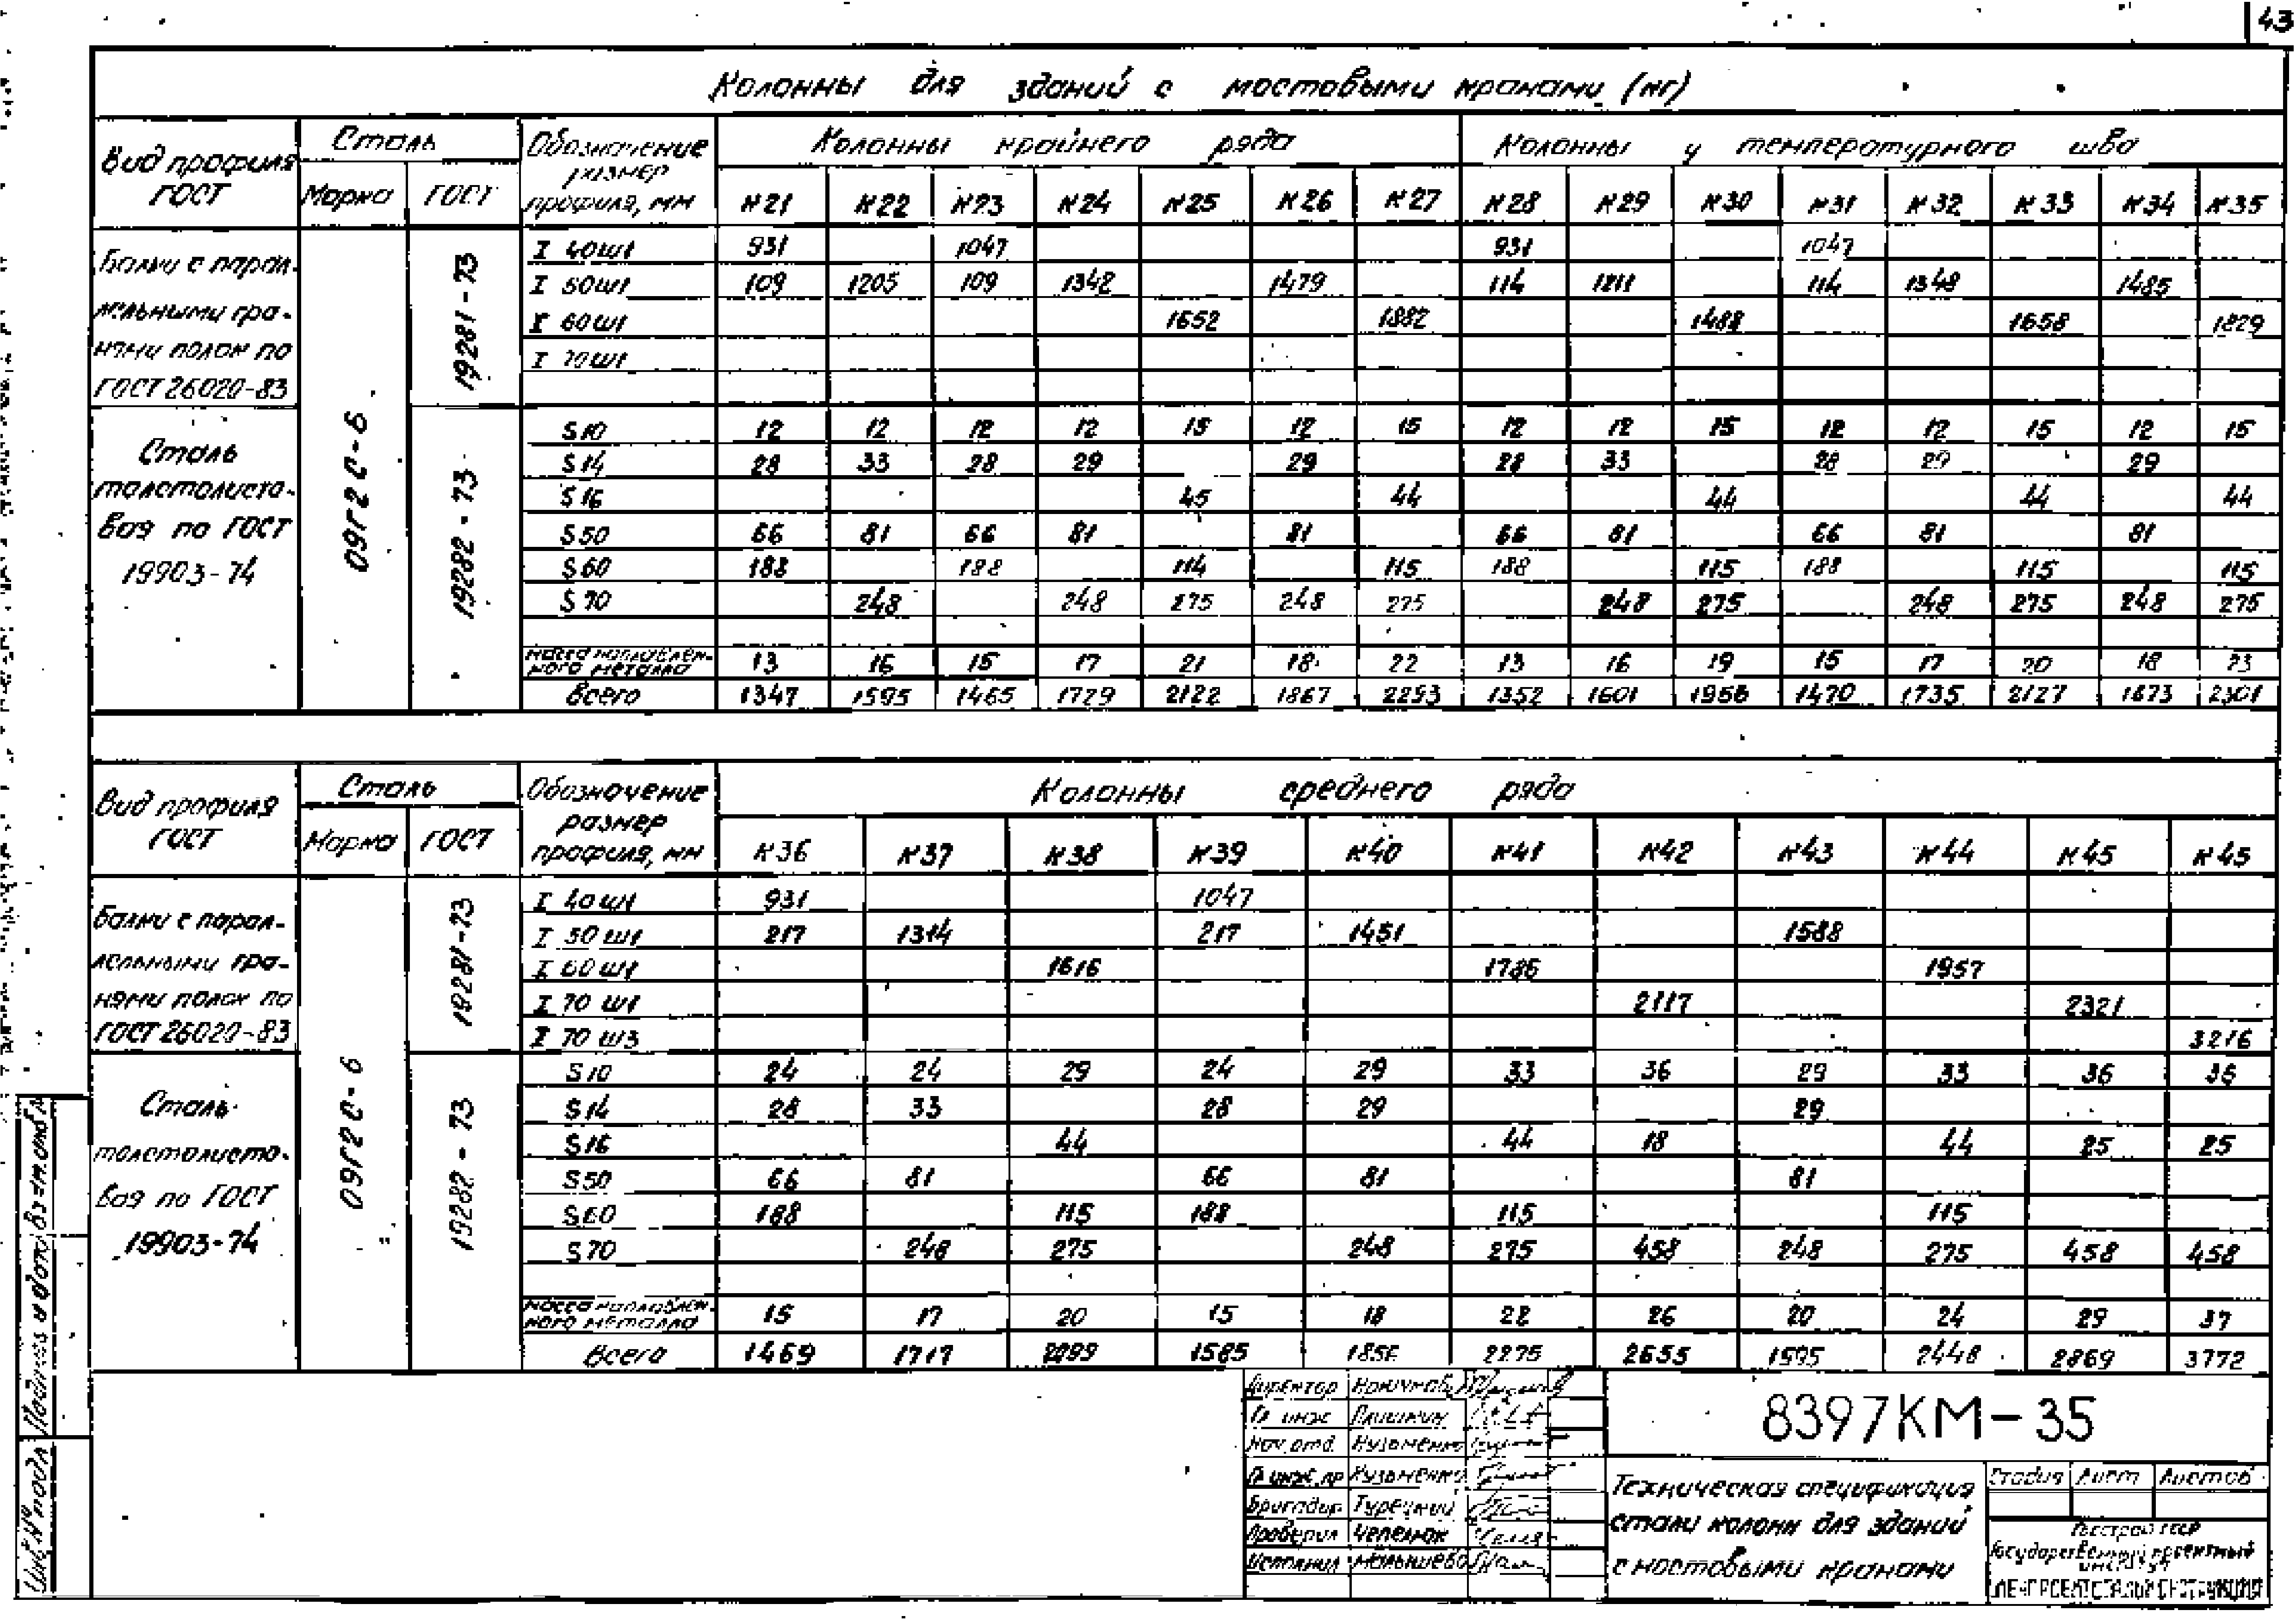 43
Колонны для зданий с мостовыми кранами (кг)
Вид профиля ГОСТ | Сталь | Обозначение размер профиля, мм | Колонны крайнего ряда | Колонны у температурного шва
Марка | ГОСТ | К21 | К22 | К23 | К24 | К25 | К26 | К27 | К28 | К29 | К30 | К31 | К32 | К33 | К34 | К35
Балки с парал-
лельными гра-
нями полок по
ГОСТ 26020-83
09Г2С-6
19281-73
I 40Ш1 | 931 | 1047 | 931 | 1047
I 50Ш1 | 109 | 1205 | 109 | 1342 | 1479 | 114 | 1211 | 114 | 1348 | 1485
I 60Ш1 | 1652 | 1882 | 1488 | 1658 | 1829
I 70Ш1
Сталь
толстолисто-
вая по ГОСТ
19903-74
19282-73
S10 | 12 | 12 | 12 | 12 | 15 | 12 | 15 | 12 | 12 | 15 | 12 | 12 | 15 | 12 | 15
S14 | 28 | 33 | 28 | 29 | 29 | 28 | 33 | 28 | 29 | 29
S16 | 45 | 44 | 44 | 44 | 44
S50 | 66 | 81 | 66 | 81 | 81 | 66 | 81 | 66 | 81 | 81
S60 | 188 | 188 | 114 | 115 | 188 | 115 | 188 | 115 | 115
S70 | 248 | 248 | 275 | 248 | 275 | 248 | 275 | 248 | 275 | 248 | 275
масса наплавлен-
ного металла | 13 | 16 | 15 | 17 | 21 | 18 | 22 | 13 | 16 | 19 | 15 | 17 | 20 | 18 | 23
Всего | 1347 | 1595 | 1465 | 1729 | 2122 | 1867 | 2253 | 1352 | 1601 | 1956 | 1470 | 1735 | 2127 | 1873 | 2301
Вид профиля ГОСТ | Сталь | Обозначение размер профиля, мм | Колонны среднего ряда
Марка | ГОСТ | К36 | К37 | К38 | К39 | К40 | К41 | К42 | К43 | К44 | К45 | К45
Балки с парал-
лельными гра-
нями полок по
ГОСТ 26020-83
09Г2С-6
19281-73
I 40Ш1 | 931 | 1047
I 50Ш1 | 217 | 1314 | 217 | 1451 | 1588
I 60Ш1 | 1616 | 1786 | 1957
I 70Ш1 | 2117 | 2321
I 70Ш3 | 3216
Сталь
толстолисто-
вая по ГОСТ
19903-74
19282-73
S10 | 24 | 24 | 29 | 24 | 29 | 33 | 36 | 29 | 33 | 36 | 36
S14 | 28 | 33 | 28 | 29 | 29
S16 | 44 | 44 | 18 | 44 | 25 | 25
S50 | 66 | 81 | 66 | 81 | 81
S60 | 188 | 115 | 188 | 115 | 115
S70 | 248 | 275 | 248 | 275 | 458 | 248 | 275 | 458 | 458
масса наплавлен-
ного металла | 15 | 17 | 20 | 15 | 18 | 22 | 26 | 20 | 24 | 29 | 37
Всего | 1469 | 1717 | 2099 | 1585 | 1856 | 2275 | 2655 | 1995 | 2448 | 2869 | 3772
Инв. № подл. | Подпись и дата | Взам. инв. №
Директор
Гл. инж | Плишкин
Нач. отд. | Кузьменко
Гл. инж. пр | Кузьменко
Бригадир | Турецкий
Проверил | Чепелюк
Исполнил | Малышева
8397КМ-35
Техническая спецификация
стали колонн для зданий
с мостовыми кранами
Стадия | Лист | Листов
Госстрой СССР
Государственный проектный
институт
ЛЕНПРОЕКТСТАЛЬКОНСТРУКЦИЯ